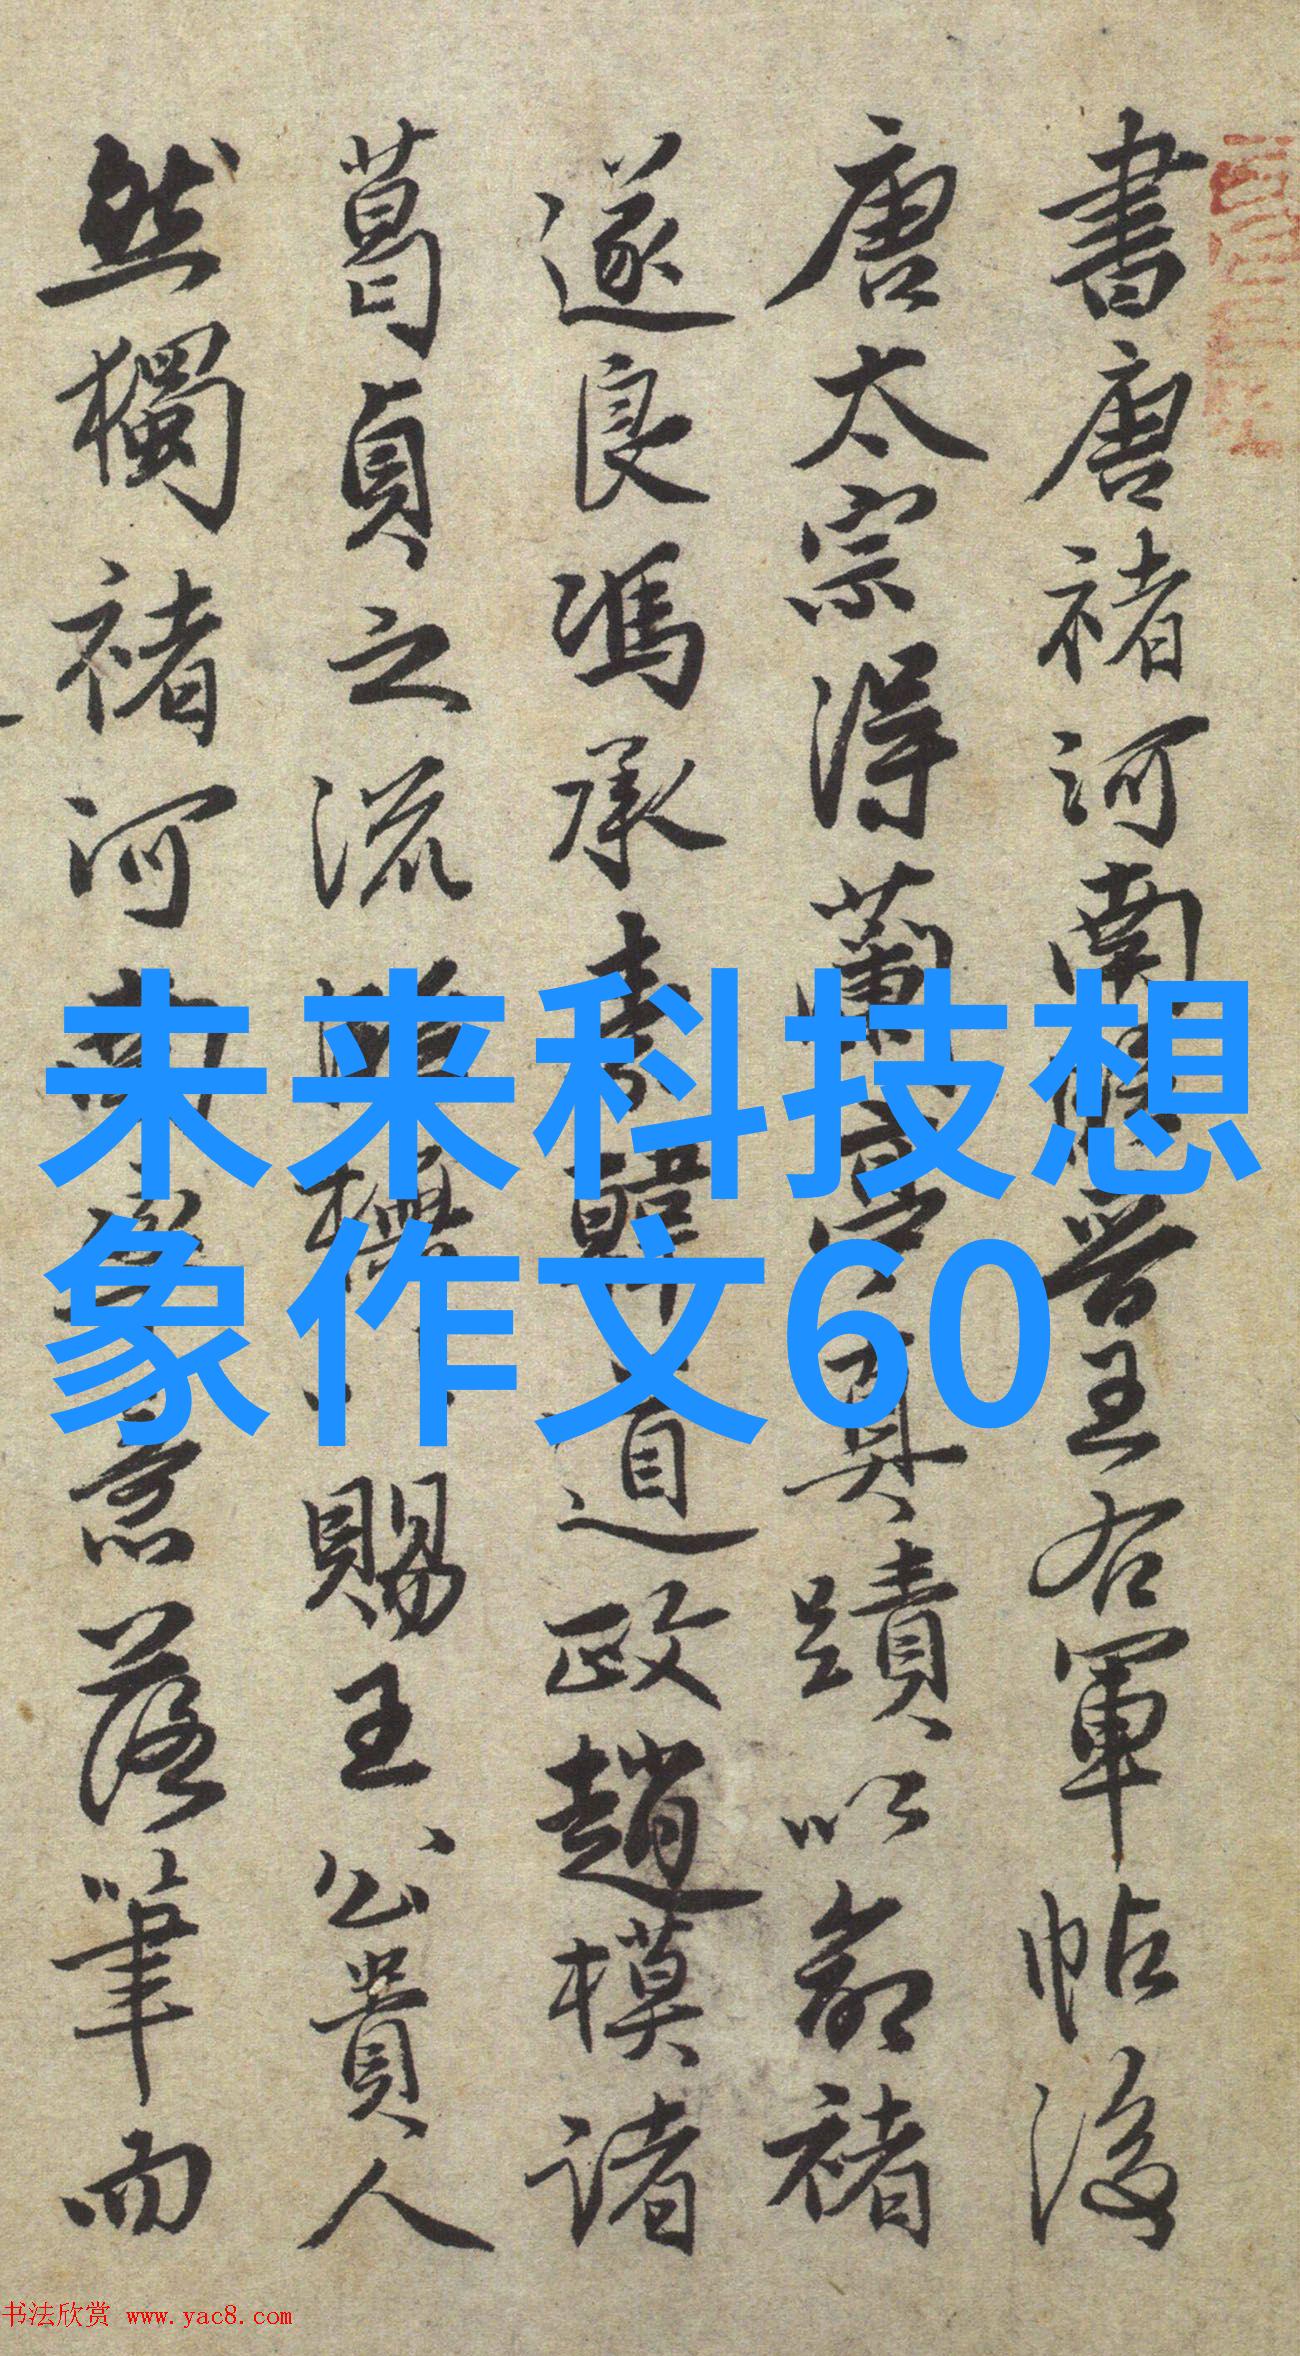 書唐褚河南晋王右軍帖後
唐太宗得蘭亭真蹟以命褚
遂良馮承素韓道政趙模諸
葛貞之流賜王公貴人
然獨褚河南意落筆而
未来科技想
象作文60
书法欣赏 www.yac8.com